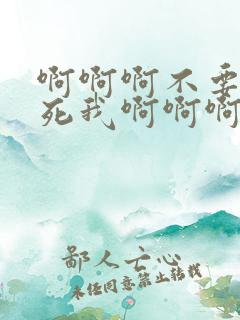 啊啊啊不要
死我啊啊啊
鄙人亡心
未经同意禁止转载